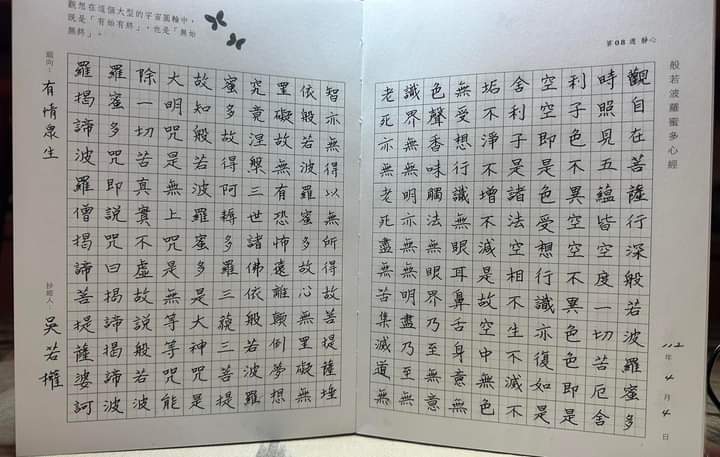 第08遍 靜心
般若波羅蜜多心經
觀自在菩薩行深般若波羅蜜多
時照見五蘊皆空度一切苦厄舍
利子色不異空空不異色色即是
空空即是色受想行識亦復如是
舍利子是諸法空相不生不滅不
垢不淨不增不減是故空中無色
無受想行識無眼耳鼻舌身意無
色聲香味觸法無眼界乃至無意
識界無無明亦無無明盡乃至無
老死亦無老死盡無苦集滅道無
112年4月4日
觀想在這個大型的宇宙圓輪中，
既是「有始有終」，也是「無始
無終」。
智亦無得以無所得故菩提薩埵
依般若波羅蜜多故心無罣礙無
罣礙故無有恐怖遠離顛倒夢想
究竟涅槃三世諸佛依般若波羅
蜜多故得阿耨多羅三藐三菩提
故知般若波羅蜜多是大神咒是
大明咒是無上咒是無等等咒能
除一切苦真實不虛故說般若波
羅蜜多咒即說咒曰揭諦揭諦波
羅揭諦波羅僧揭諦菩提薩婆訶
迴向：有情眾生
抄經人：吳若權